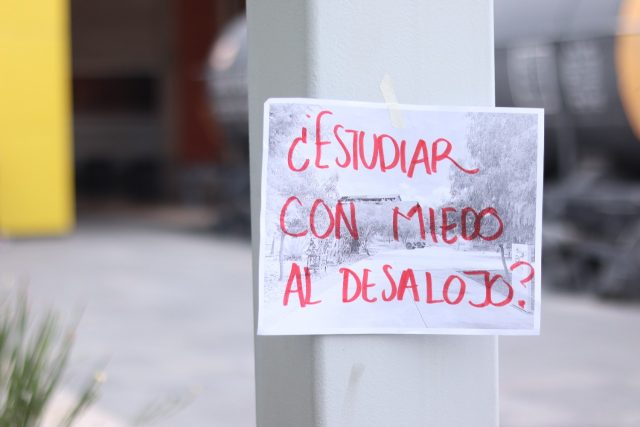 ¿ESTUDIAR
CON MIEDO
AL DESALOJO?